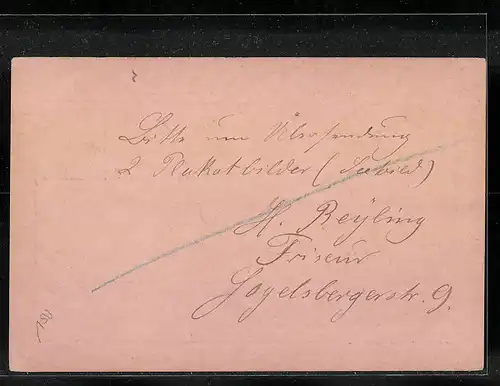 Bitte um Übersendung
2 Plakatbilder (Seebild)
H. Reyling
Friseur
Hagelsbergerstr. 9.
150